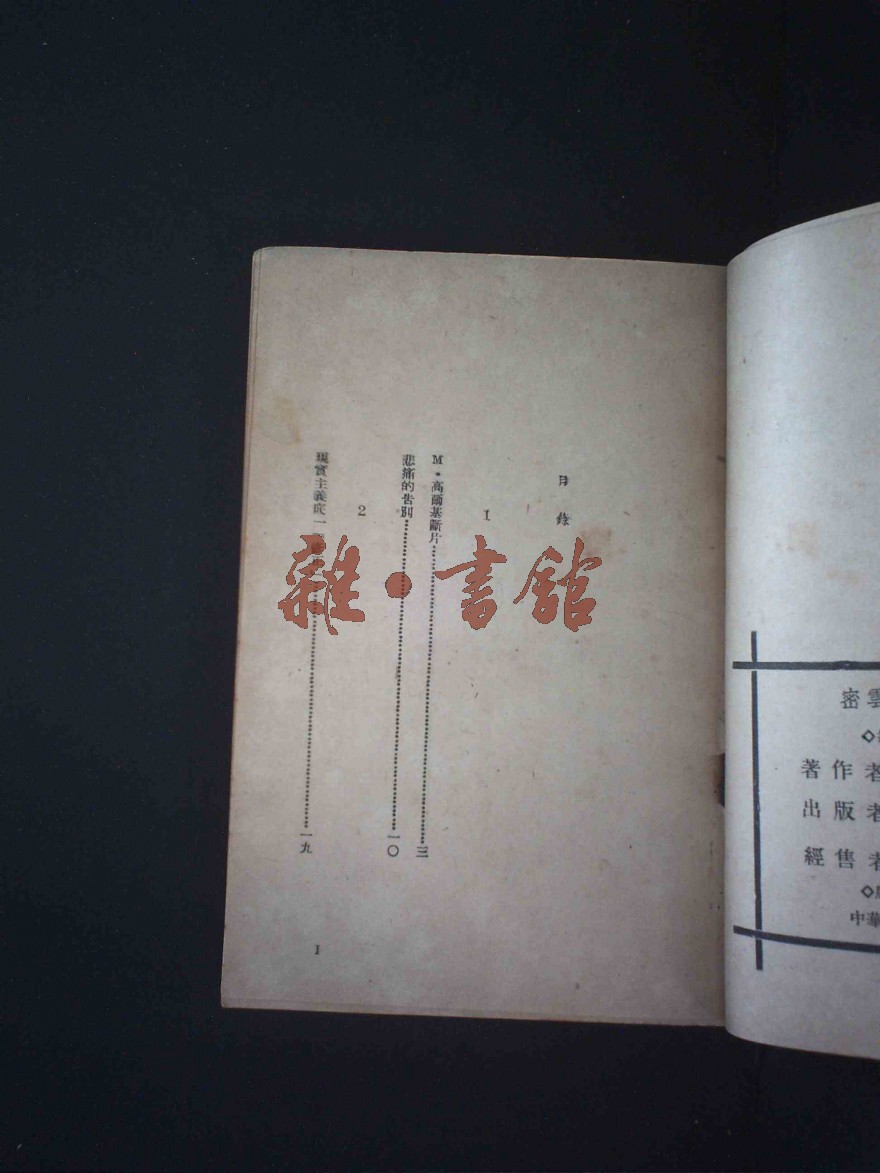 目錄
I
M·高爾基斷片……三
悲痛的告別……一〇
2
現實主義底一……一九
I
雜·書館
密雲
著作者
出版者
經售者
中華